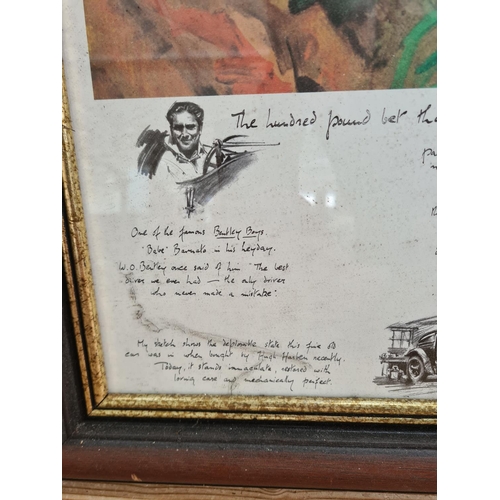 The hundred pound bet tha
One of the famous Bentley Boys.
"Babe" Barnato in his heyday.
W.O. Bentley once said of him "The best
driver we ever had — the only driver
who never made a mistake".
My sketch shows the deplorable state this fine old
car was in when bought by Hugh Harben recently.
Today, it stands immaculate, restored with
loving care and mechanically perfect.